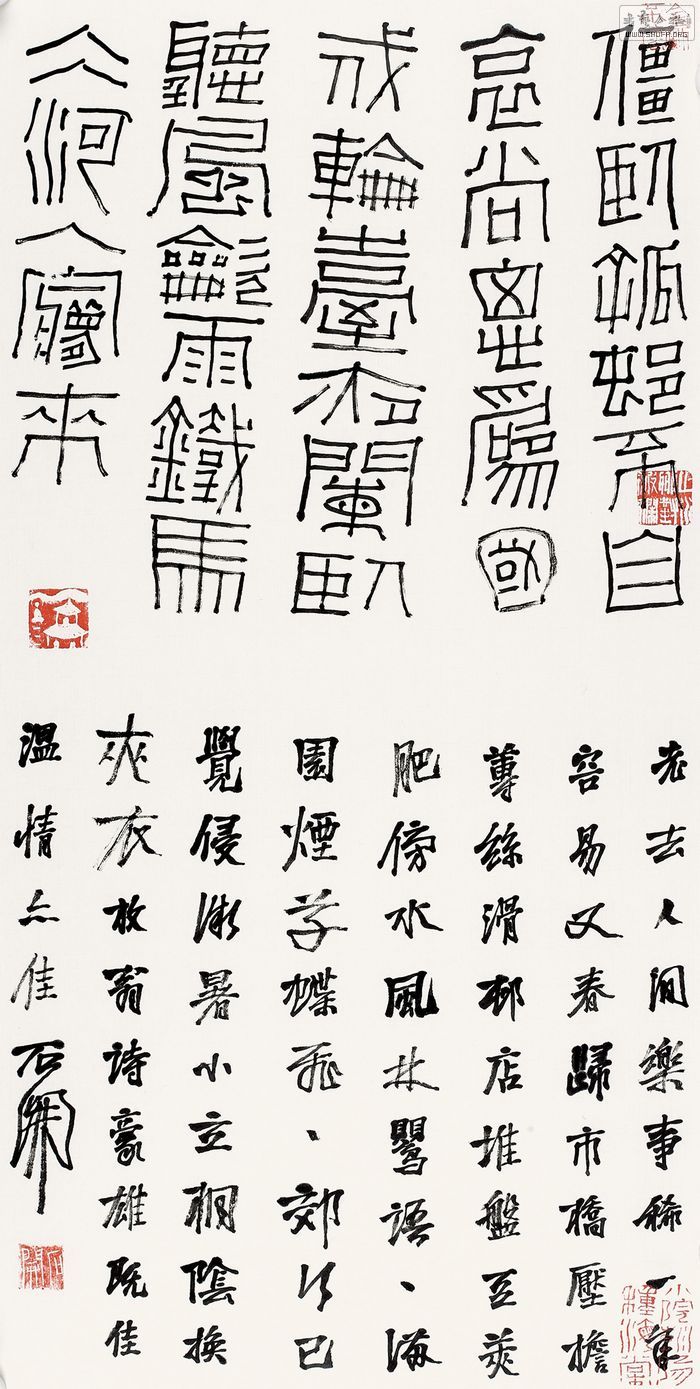 僵臥孤邨不自
哀尚思為國
戍輪臺夜闌臥
聽風龡雨鐵馬
冰河入夢來
老去人間樂事稀一年
容易又春歸市橋壓擔
蓴絲滑邨店堆盤豆莢
肥傍水風林鶯語、滿
園煙草蝶飛、郊行已
覺侵微暑小立桐陰換
夾衣放翁詩豪雄既佳
溫情亦佳石開
WWW.SHUFA.ORG